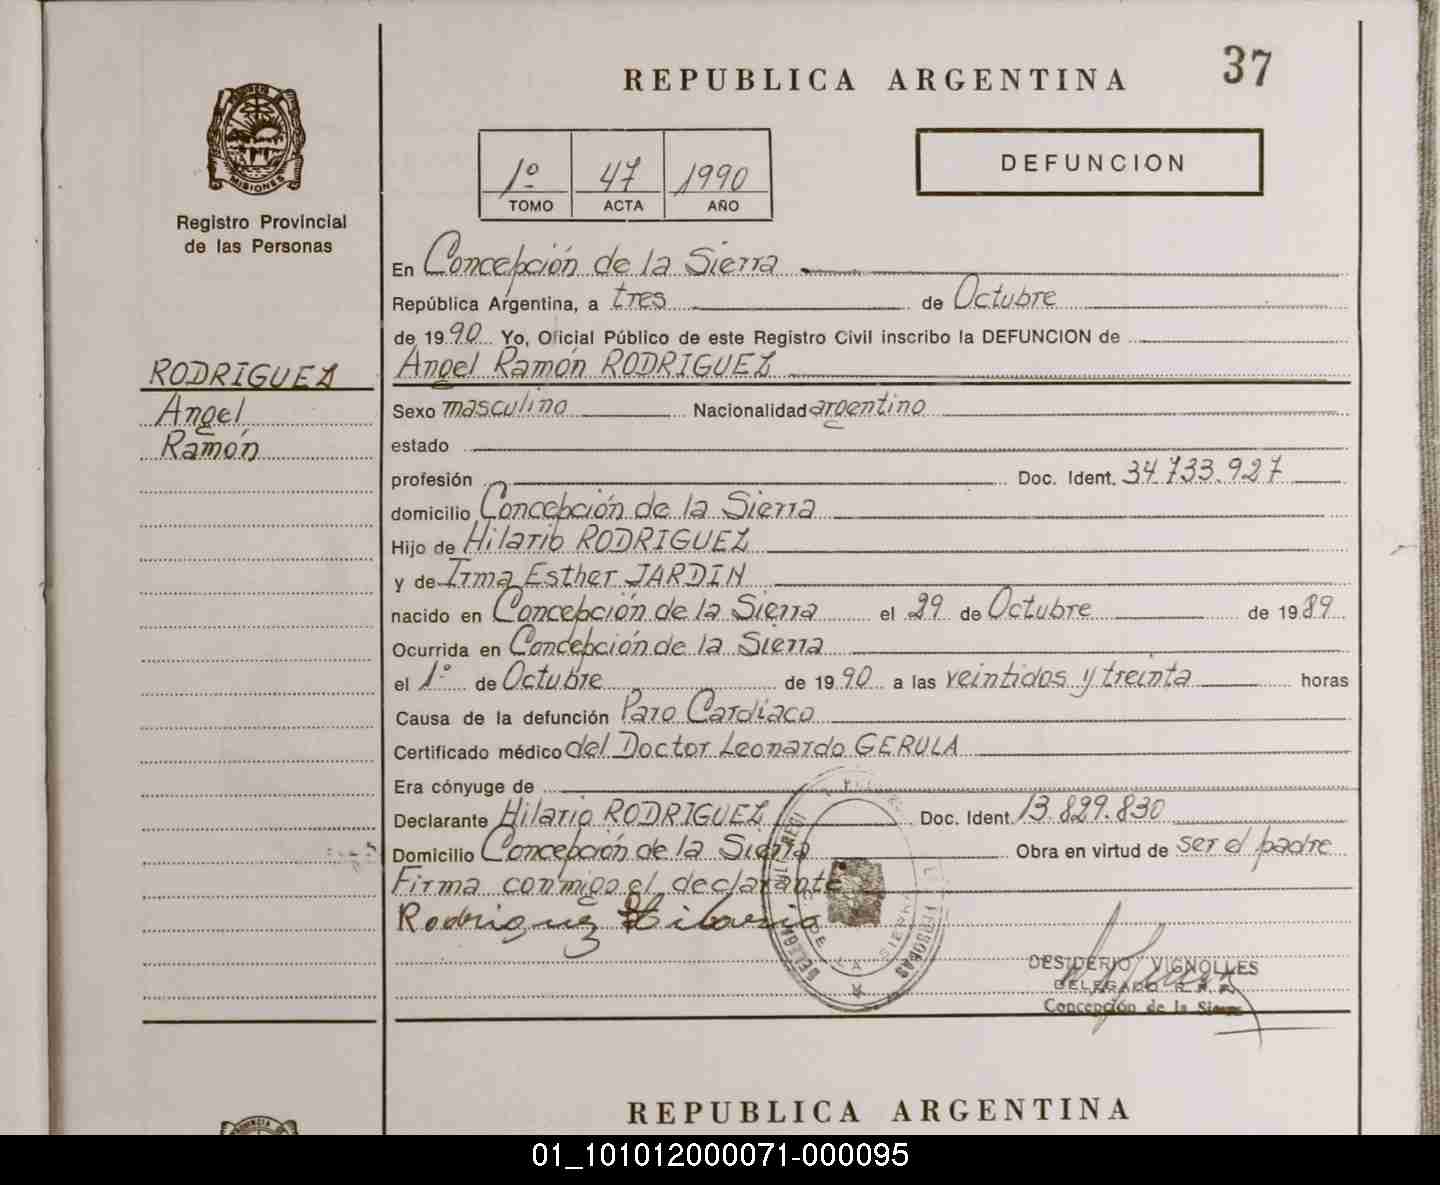 37
REPUBLICA ARGENTINA
1º 47 1990
TOMO ACTA AÑO
DEFUNCION
MISIONES
Registro Provincial
de las Personas
RODRIGUEZ
Angel
Ramón
En Concepción de la Sierra
República Argentina, a tres de Octubre
de 1990 Yo, Oficial Público de este Registro Civil inscribo la DEFUNCION de
Angel Ramón RODRIGUEZ
Sexo masculino Nacionalidad argentino
estado
profesión Doc. Ident. 34.733.927
domicilio Concepción de la Sierra
Hijo de Hilario RODRIGUEZ
y de Irma Esther JARDIN
nacido en Concepción de la Sierra el 29 de Octubre de 1989
Ocurrida en Concepción de la Sierra
el 1º de Octubre de 1990 a las veintidos y treinta horas
Causa de la defunción Paro Cardíaco
Certificado médico del Doctor Leonardo GERULA
Era cónyuge de
Declarante Hilario RODRIGUEZ Doc. Ident. 13.829.830
Domicilio Concepción de la Sierra Obra en virtud de ser el padre
Firma conmigo el declarante
Rodriguez Hilario
DE LA SIERRA
DESIDERIO VIGNOLLES
DELEGADO R. P. P.
Concepción de la Sierra
REPUBLICA ARGENTINA
01_101012000071-000095